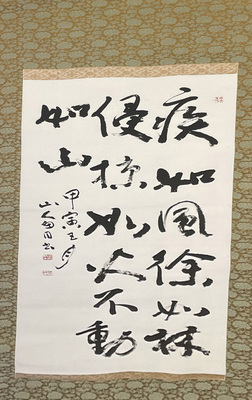 疾如風徐如林
侵掠如火不動
如山
甲寅月
山人書